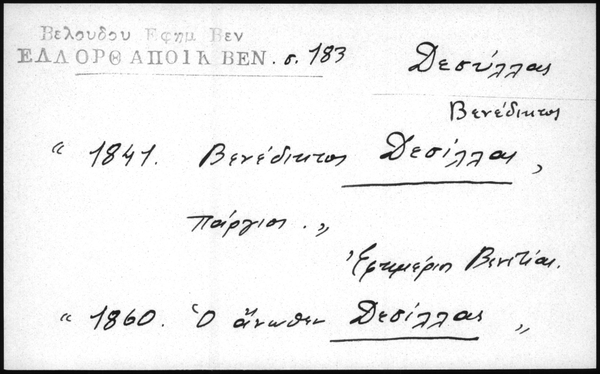 Βελουδου Εφημ Βεν
ΕΛΛΟΡΘ ΑΠΟΙΚ ΒΕΝ. σ. 183
Δεσύλλας
Βενέδικτος
" 1841. Βενέδικτος Δεσίλλας,
πάργιος. "
Ἐφημέριοι Βενετίας.
" 1860. Ὁ ἄνωθεν Δεσίλλας "